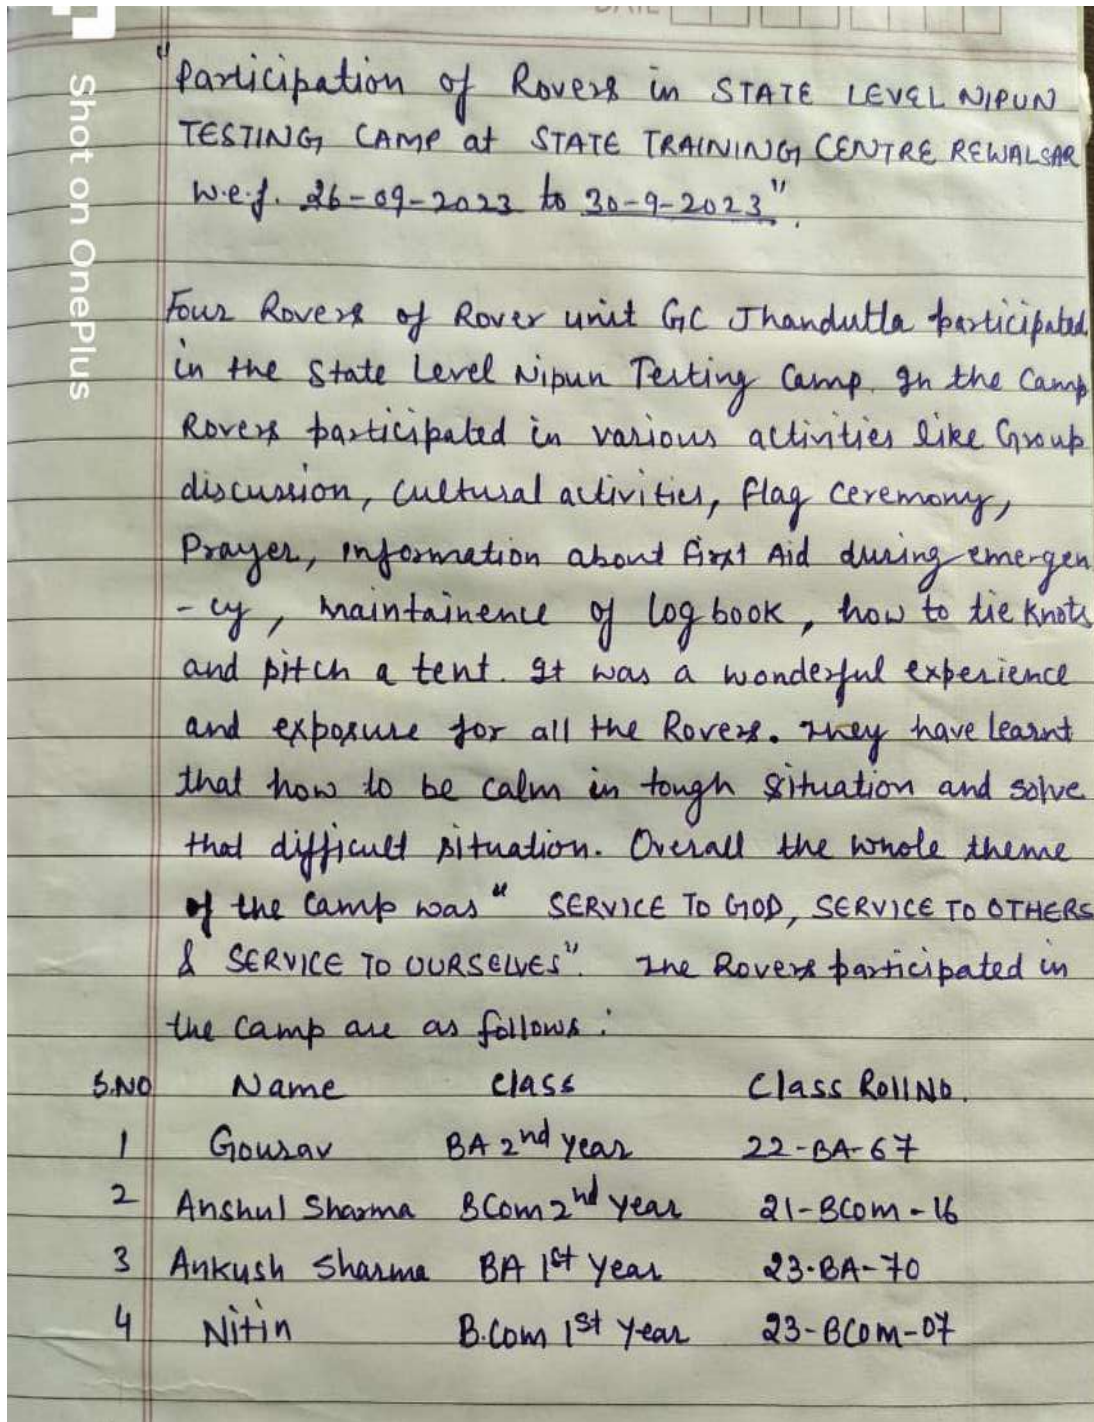 DATE
Shot on OnePlus
"Participation of Rovers in STATE LEVEL NIPUN
TESTING CAMP at STATE TRAINING CENTRE REWALSAR
w.e.f. 26-09-2023 to 30-9-2023".
Four Rovers of Rover unit GC Jhandutta participated
in the State Level Nipun Testing Camp. In the Camp
Rovers participated in various activities like Group
discussion, cultural activities, flag ceremony,
Prayer, information about first Aid during emergen
-cy, maintainence of log book, how to tie knots
and pitch a tent. It was a wonderful experience
and exposure for all the Rovers. They have learnt
that how to be calm in tough situation and solve
that difficult situation. Overall the whole theme
of the camp was "SERVICE TO GOD, SERVICE TO OTHERS
& SERVICE TO OURSELVES". The Rovers participated in
the camp are as follows:
S.NO Name Class Class Roll No.
1 Gourav BA 2nd year 22-BA-67
2 Anshul Sharma BCom 2nd year 21-BCom-16
3 Ankush Sharma BA 1st year 23-BA-70
4 Nitin B.Com 1st year 23-BCom-07